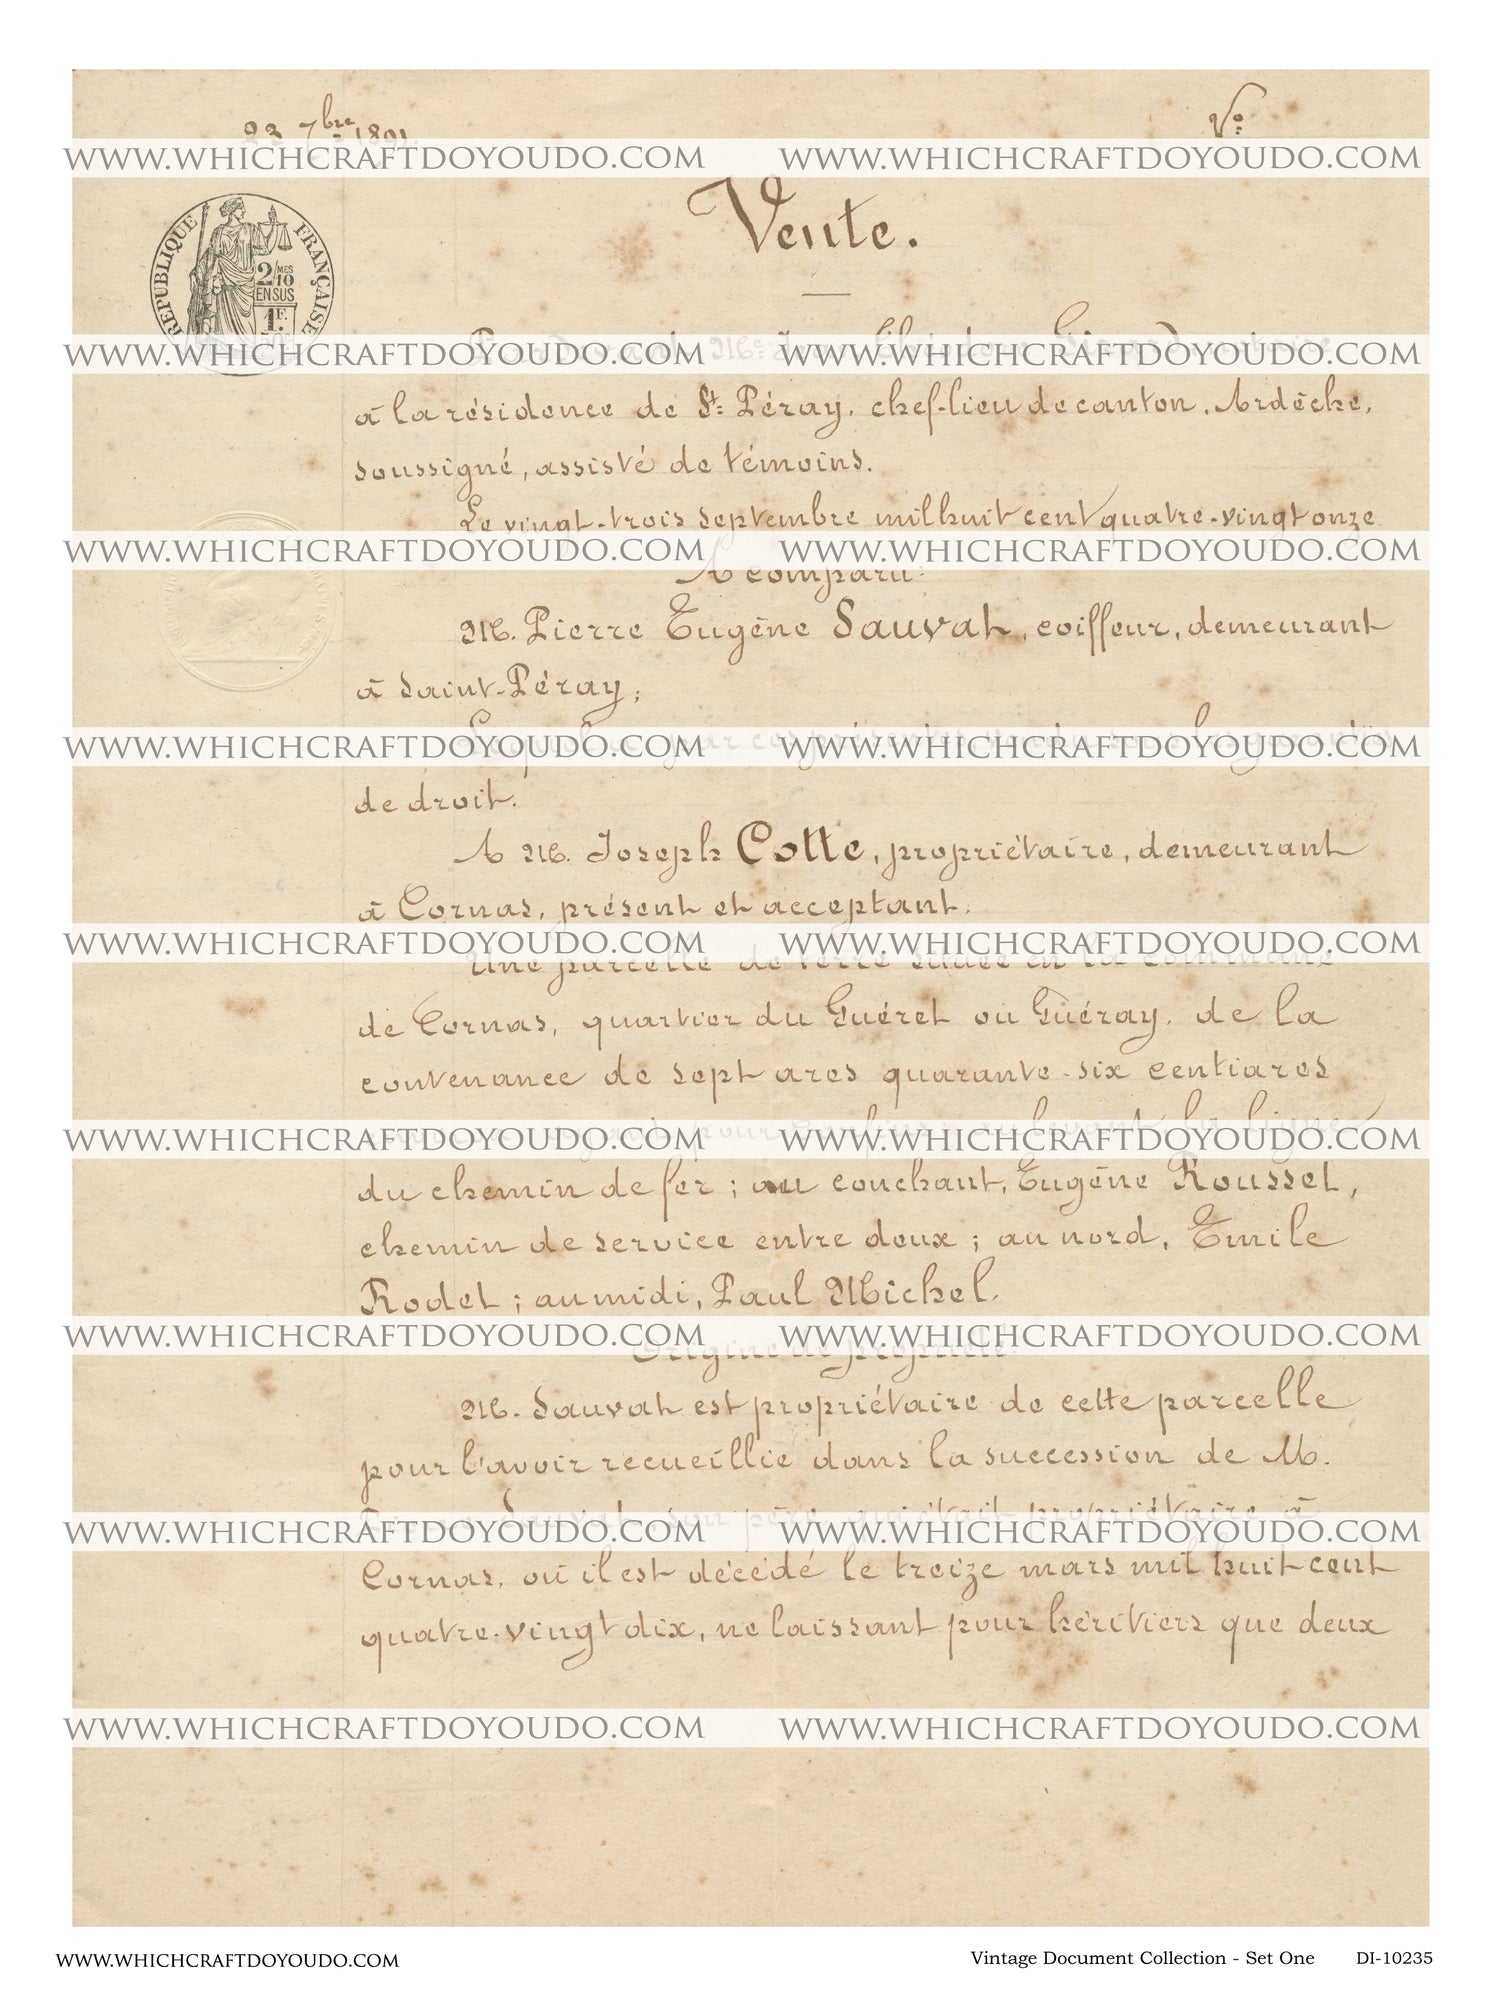 23 7bre 1891.
Vo
WWW.WHICHCRAFTDOYOUDO.COM WWW.WHICHCRAFTDOYOUDO.COM
Vente.
REPUBLIQUE FRANÇAISE
2/10 MES
EN SUS
1 F.
Jean Girard notaire
WWW.WHICHCRAFTDOYOUDO.COM WWW.WHICHCRAFTDOYOUDO.COM
à la résidence de St. Péray, chef-lieu de canton, Ardèche,
soussigné, assisté de témoins.
Le vingt-trois septembre mil huit cent quatre-vingt onze
WWW.WHICHCRAFTDOYOUDO.COM WWW.WHICHCRAFTDOYOUDO.COM
A comparu:
M. Pierre Eugène Sauvat, coiffeur, demeurant
à Saint-Péray;
Lequel a par ces présentes vendu sous les garanties
WWW.WHICHCRAFTDOYOUDO.COM WWW.WHICHCRAFTDOYOUDO.COM
de droit.
A M. Joseph Cotte, propriétaire, demeurant
à Cornas, présent et acceptant.
WWW.WHICHCRAFTDOYOUDO.COM WWW.WHICHCRAFTDOYOUDO.COM
Une parcelle de terre située en la commune
de Cornas, quartier du Guéret ou Guéray, de la
contenance de sept ares quarante-six centiares
ayant pour confins: au levant, la ligne
WWW.WHICHCRAFTDOYOUDO.COM WWW.WHICHCRAFTDOYOUDO.COM
du chemin de fer; au couchant, Eugène Rousset,
chemin de service entre deux; au nord, Emile
Rodet; au midi, Paul Michel.
WWW.WHICHCRAFTDOYOUDO.COM WWW.WHICHCRAFTDOYOUDO.COM
Origine de propriété.
M. Sauvat est propriétaire de cette parcelle
pour l'avoir recueillie dans la succession de M.
Sauvat, son père, qui était propriétaire à
WWW.WHICHCRAFTDOYOUDO.COM WWW.WHICHCRAFTDOYOUDO.COM
Cornas, où il est décédé le treize mars mil huit cent
quatre-vingt dix, ne laissant pour héritiers que deux
WWW.WHICHCRAFTDOYOUDO.COM WWW.WHICHCRAFTDOYOUDO.COM
WWW.WHICHCRAFTDOYOUDO.COM Vintage Document Collection - Set One DI-10235